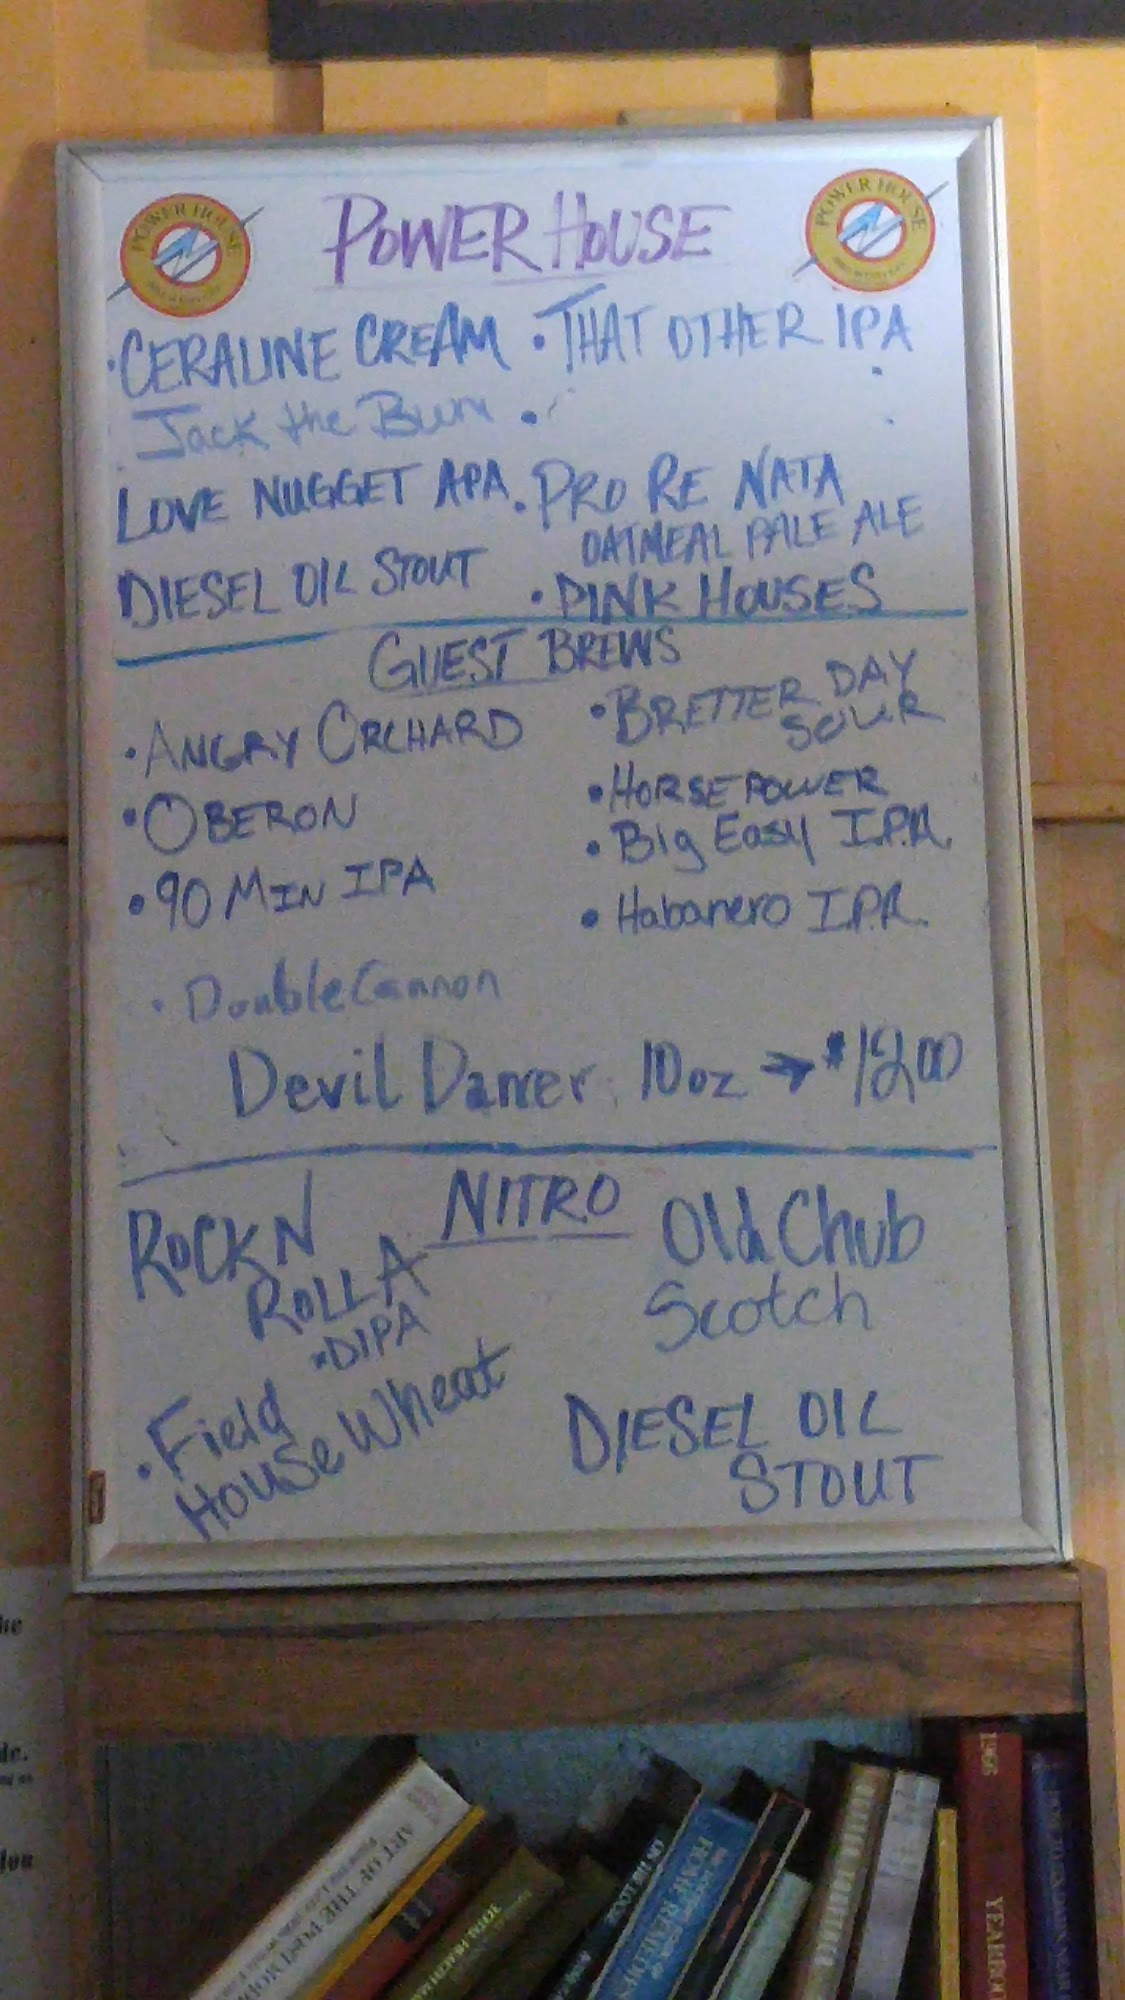 POWER HOUSE
POWER HOUSE
POWER HOUSE
• CERALINE CREAM
• THAT OTHER IPA
Jack the Bum
LOVE NUGGET APA
• PRO RE NATA
OATMEAL PALE ALE
DIESEL OIL STOUT
• PINK HOUSES
GUEST BREWS
• ANGRY ORCHARD
• BRETTER DAY
SOUR
• OBERON
• HORSEPOWER
• Big Easy I.P.A.
• 90 MIN IPA
• Habanero I.P.A.
• Double Cannon
Devil Dancer 10oz → $12.00
NITRO
ROCK N
ROLLA
• DIPA
Old Chub
Scotch
• Field
House Wheat
DIESEL OIL
STOUT
1966
YEARBOOK
HOME REMEDIES